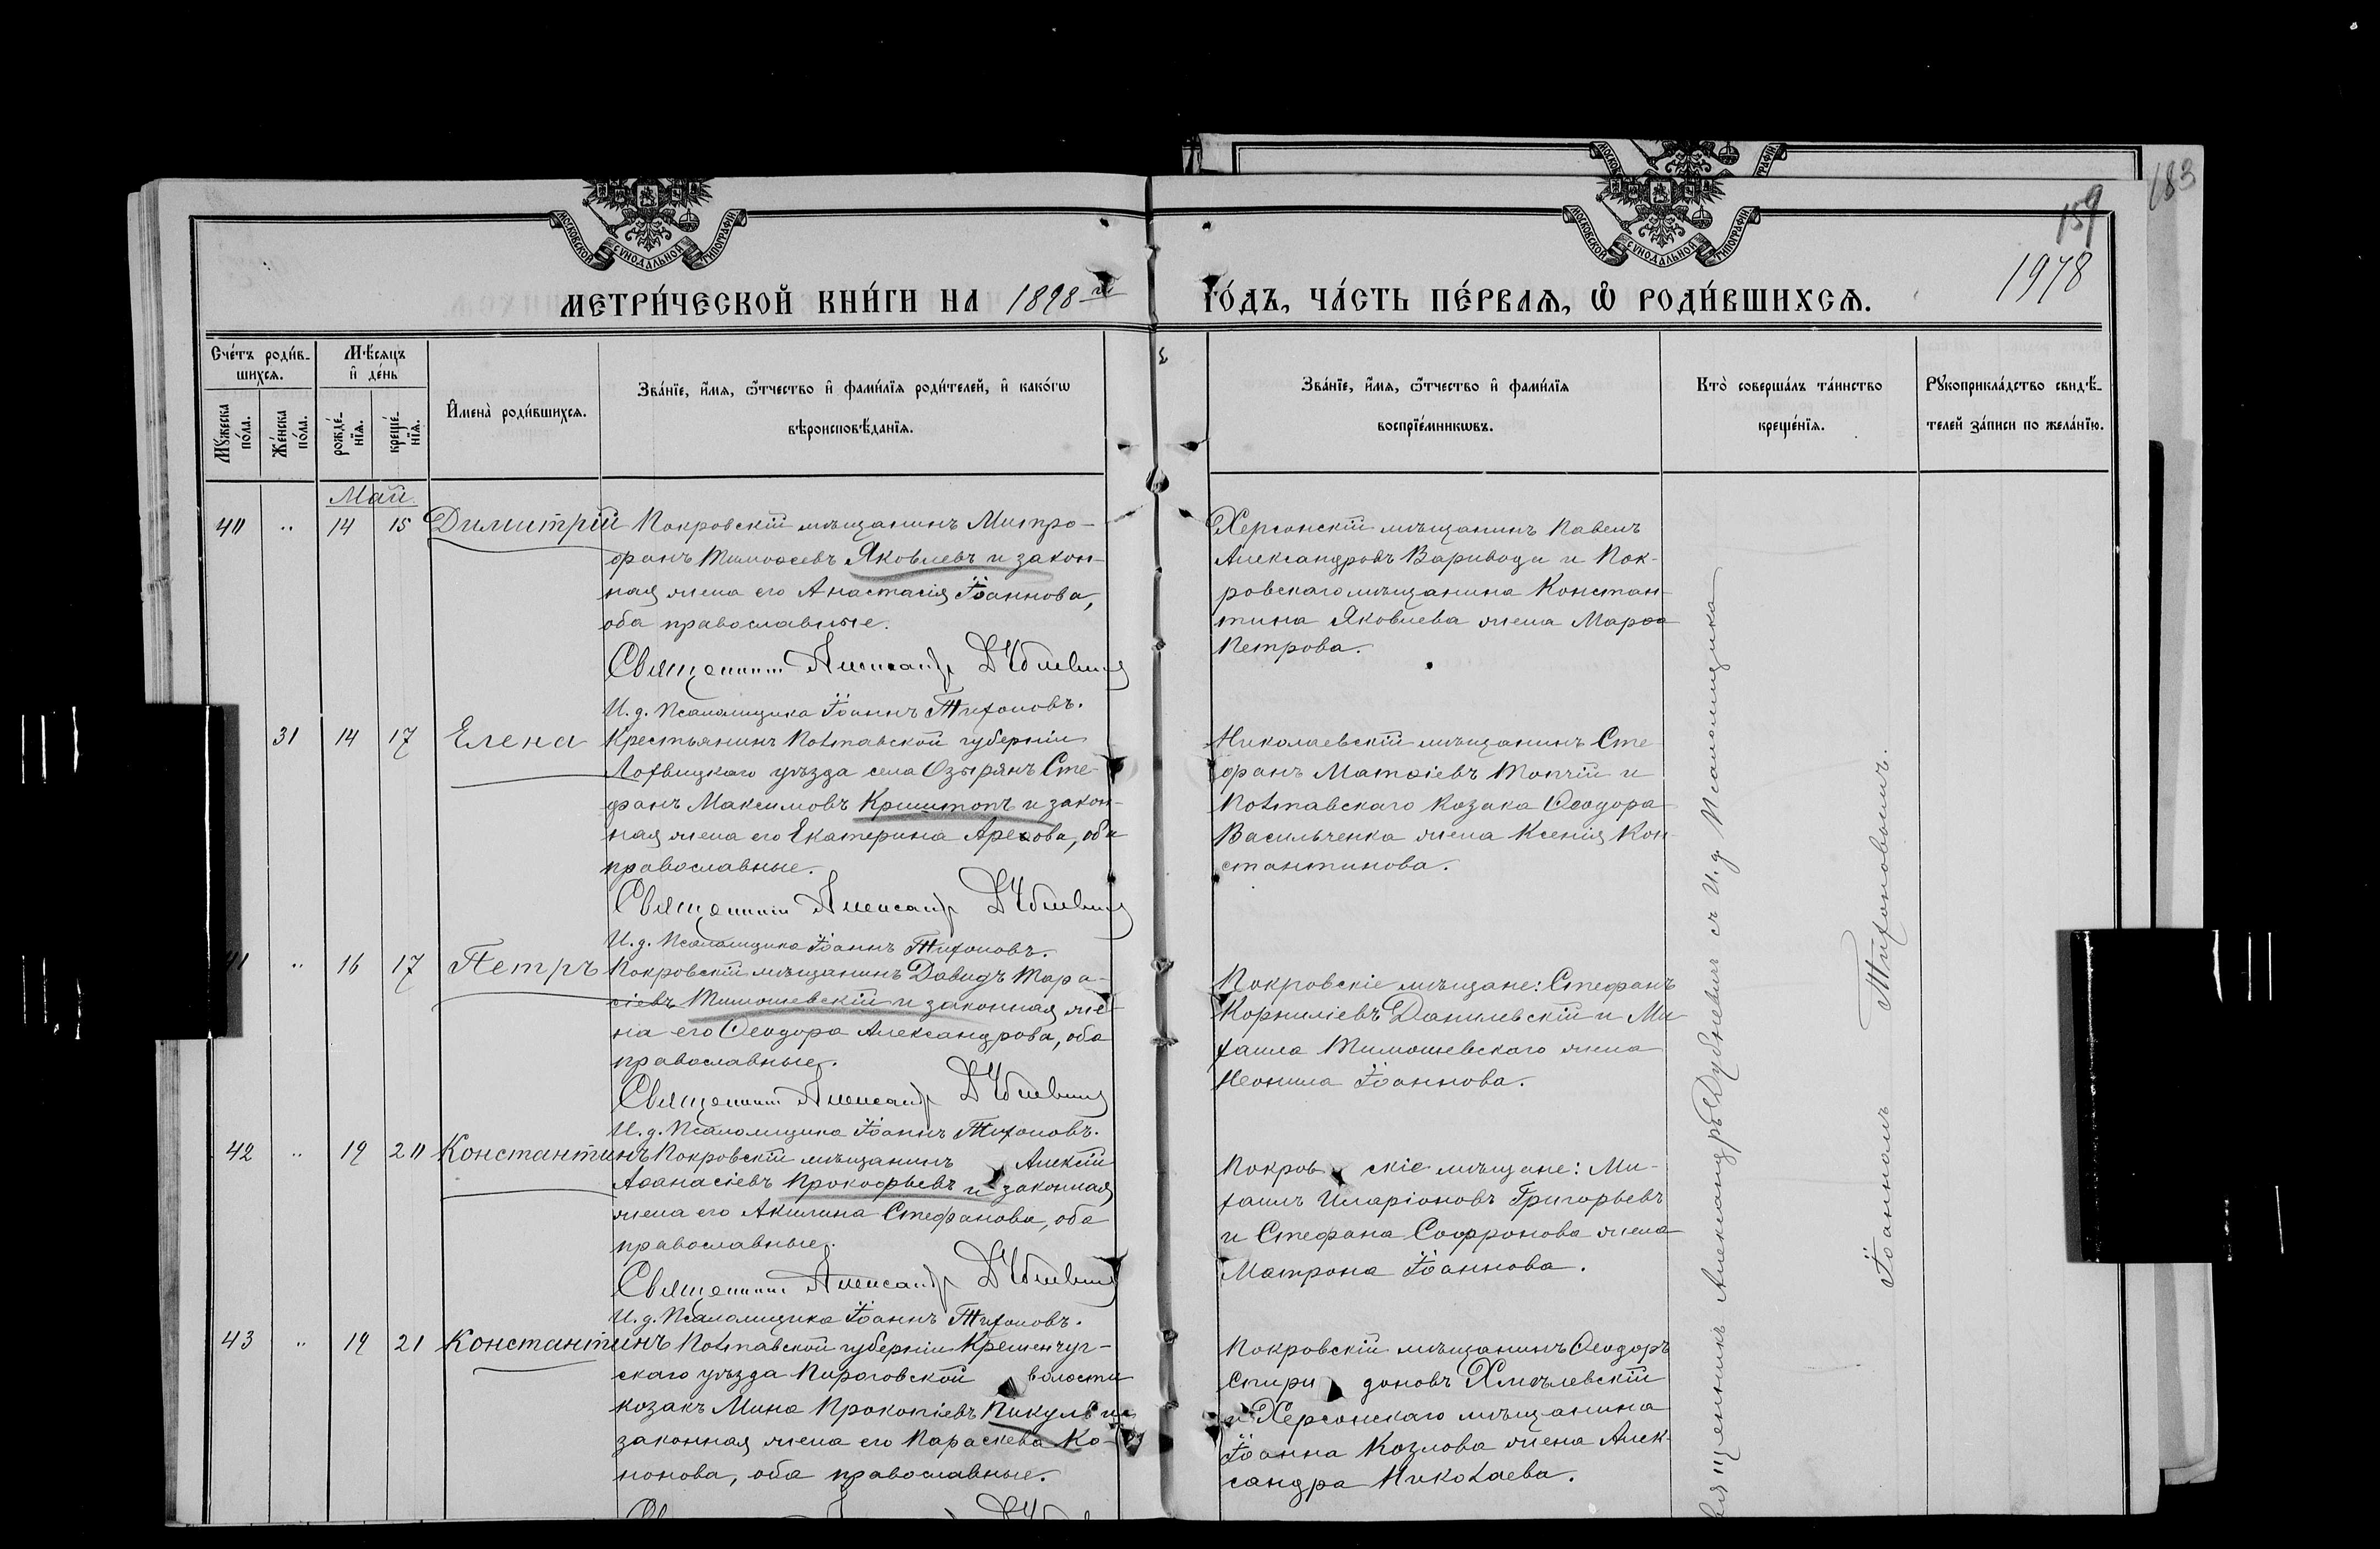 183
159
1978
МОСКОВСКОЙ СѴНОДАЛЬНОЙ ТИПОГРАФІИ
МОСКОВСКОЙ СѴНОДАЛЬНОЙ ТИПОГРАФІИ
МЕТРИ́ЧЕСКОЙ КНИ́ГИ НА 1898 й
ГО́ДЪ, ЧА́СТЬ ПЕ́РВАѦ, Ѡ РОДИ́ВШИХСѦ.
Сче́тъ роди́в-
шихсѧ.
Мѣ́сѧцъ
и҆ де́нь
Мꙋ́жеска
по́ла.
Же́нска
по́ла.
рожде́-
нїѧ.
креще́-
нїѧ.
И҆мена̀ роди́вшихсѧ.
Зва́нїе, и҆́мѧ, ѻ҆́тчество и҆ фами́лїѧ роди́телей, и҆ како́гѡ
вѣроисповѣ́данїѧ.
Зва́нїе, и҆́мѧ, ѻ҆́тчество и҆ фами́лїѧ
воспрїе́мникѡвъ.
Кто̀ соверша́лъ та́инство
креще́нїѧ.
Рꙋкоприкла́дство свидѣ́-
телей за́писи по жела́нїю.
Май
40 " 14 15 Димитрій Покровскій мѣщанинъ Митро-
фанъ Тимоѳеевъ Яковлевъ и закон-
ная жена его Анастасія Іоаннова,
оба православные.
Священникъ Александръ Дубневичъ
И. д. Псаломщика Іоаннъ Тихоновъ.
Херсонскій мѣщанинъ Павелъ
Александровъ Варивода и Пок-
ровскаго мѣщанина Констан-
тина Яковлева жена Марѳа
Петрова.
31 14 17 Елена Крестьянинъ Полтавской губерніи
Лохвицкаго уѣзда села Озырянъ Сте-
фанъ Максимовъ Криштопъ и закон-
ная жена его Екатерина Арефова, оба
православные.
Священникъ Александръ Дубневичъ
И. д. Псаломщика Іоаннъ Тихоновъ.
Николаевскій мѣщанинъ Сте-
фанъ Матѳіевъ Топчій и
Полтавскаго козака Ѳеодора
Васильченка жена Ксенія Кон-
стантинова.
41 " 16 17 Петръ Покровскій мѣщанинъ Давидъ Тара-
сіевъ Тимошевскій и законная же-
на его Ѳеодора Александрова, оба
православные.
Священникъ Александръ Дубневичъ
И. д. Псаломщика Іоаннъ Тихоновъ.
Покровскіе мѣщане: Стефанъ
Корниліевъ Данилевскій и Ми-
хаила Тимошевскаго жена
Неонила Іоаннова.
42 " 19 20 Константинъ Покровскій мѣщанинъ Алексій
Аѳанасіевъ Прокофьевъ и законная
жена его Акилина Стефанова, оба
православные.
Священникъ Александръ Дубневичъ
И. д. Псаломщика Іоаннъ Тихоновъ.
Покров скіе мѣщане: Ми-
хаилъ Иларіоновъ Григорьевъ
и Стефана Софронова жена
Матрона Іоаннова.
43 " 19 21 Константинъ Полтавской губерніи Кременчуг-
скаго уѣзда Пироговской волости
козакъ Мина Прокопіевъ Пикуль и
законная жена его Параскева Ко-
нонова, оба православные.
Покровскій мѣщанинъ Ѳеодоръ
Спири доновъ Хмѣлевскій
и Херсонскаго мѣщанина
Іоанна Козлова жена Алек-
сандра Николаева.
Священникъ Александръ Дубневичъ съ И. д. Псаломщика
Іоанномъ Тихоновымъ.